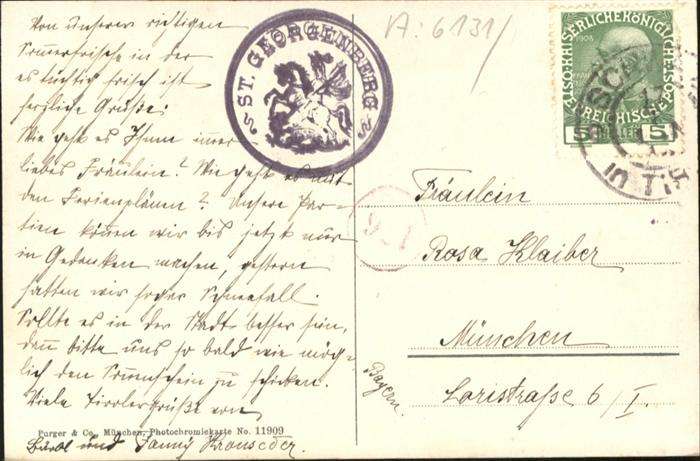 Von unserer richtigen
Sommerfrische in der
es tüchtig frisch ist
herzliche Grüße!
Wie geht es Ihnen immer
liebes Fräulein? Wie geht es mit
den Ferienplänen? Unsere Par-
tien können wir bis jetzt nur
in Gedanken machen, gestern
hatten wir sogar Schneefall.
Sollte es in der Stadt besser sein,
dann bitte uns so bald wie mög-
lich den Sonnenschein zu schicken.
Viele Tirolergrüße von
Purger & Co., München, Photochromiekarte No. 11909
und Fanny
ST. GEORGENBERG
A: 6131/
KAISERLICHE KÖNIGLICHE
REICHISCHE
1908
5 5
Fräulein
Rosa Klaiber
München
Bayern
Loristraße 6/I